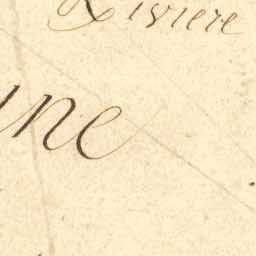 Riviere
ne